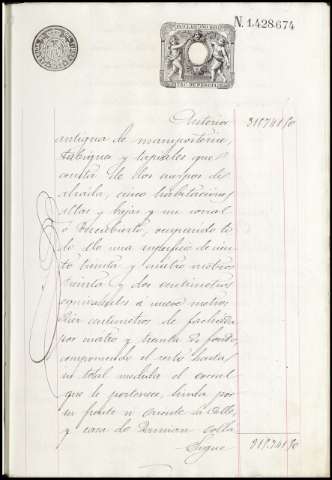 N. 1.428.674
Anterior 318.741,50
antigua de mamposteria,
tabiques y tapiales que
consta de dos cuerpos de
alzada, cinco habitaciones
altas y bajas y un corral
ó descubierto, ocupando to
do ello una superficie de cien
to treinta y cuatro metros
treinta y dos centimetros
equivalentes a nueve metros
diez centimetros de fachada
por cuatro y treinta de fondo,
componiendo el resto hasta
su total medida el corral
que le pertenece, linda por
su frente u Oriente la Calle,
y casa de Damian
Sigue 318.741,50